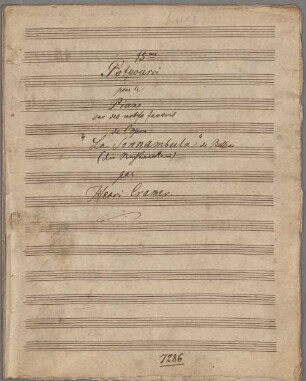 15me
Potpourri
pour le
Piano
sur des motifs favoris
de l'Opera
"La Sonnambula" de Bellini
(die Nachtwandlerin)
par
Henri Cramer
7286